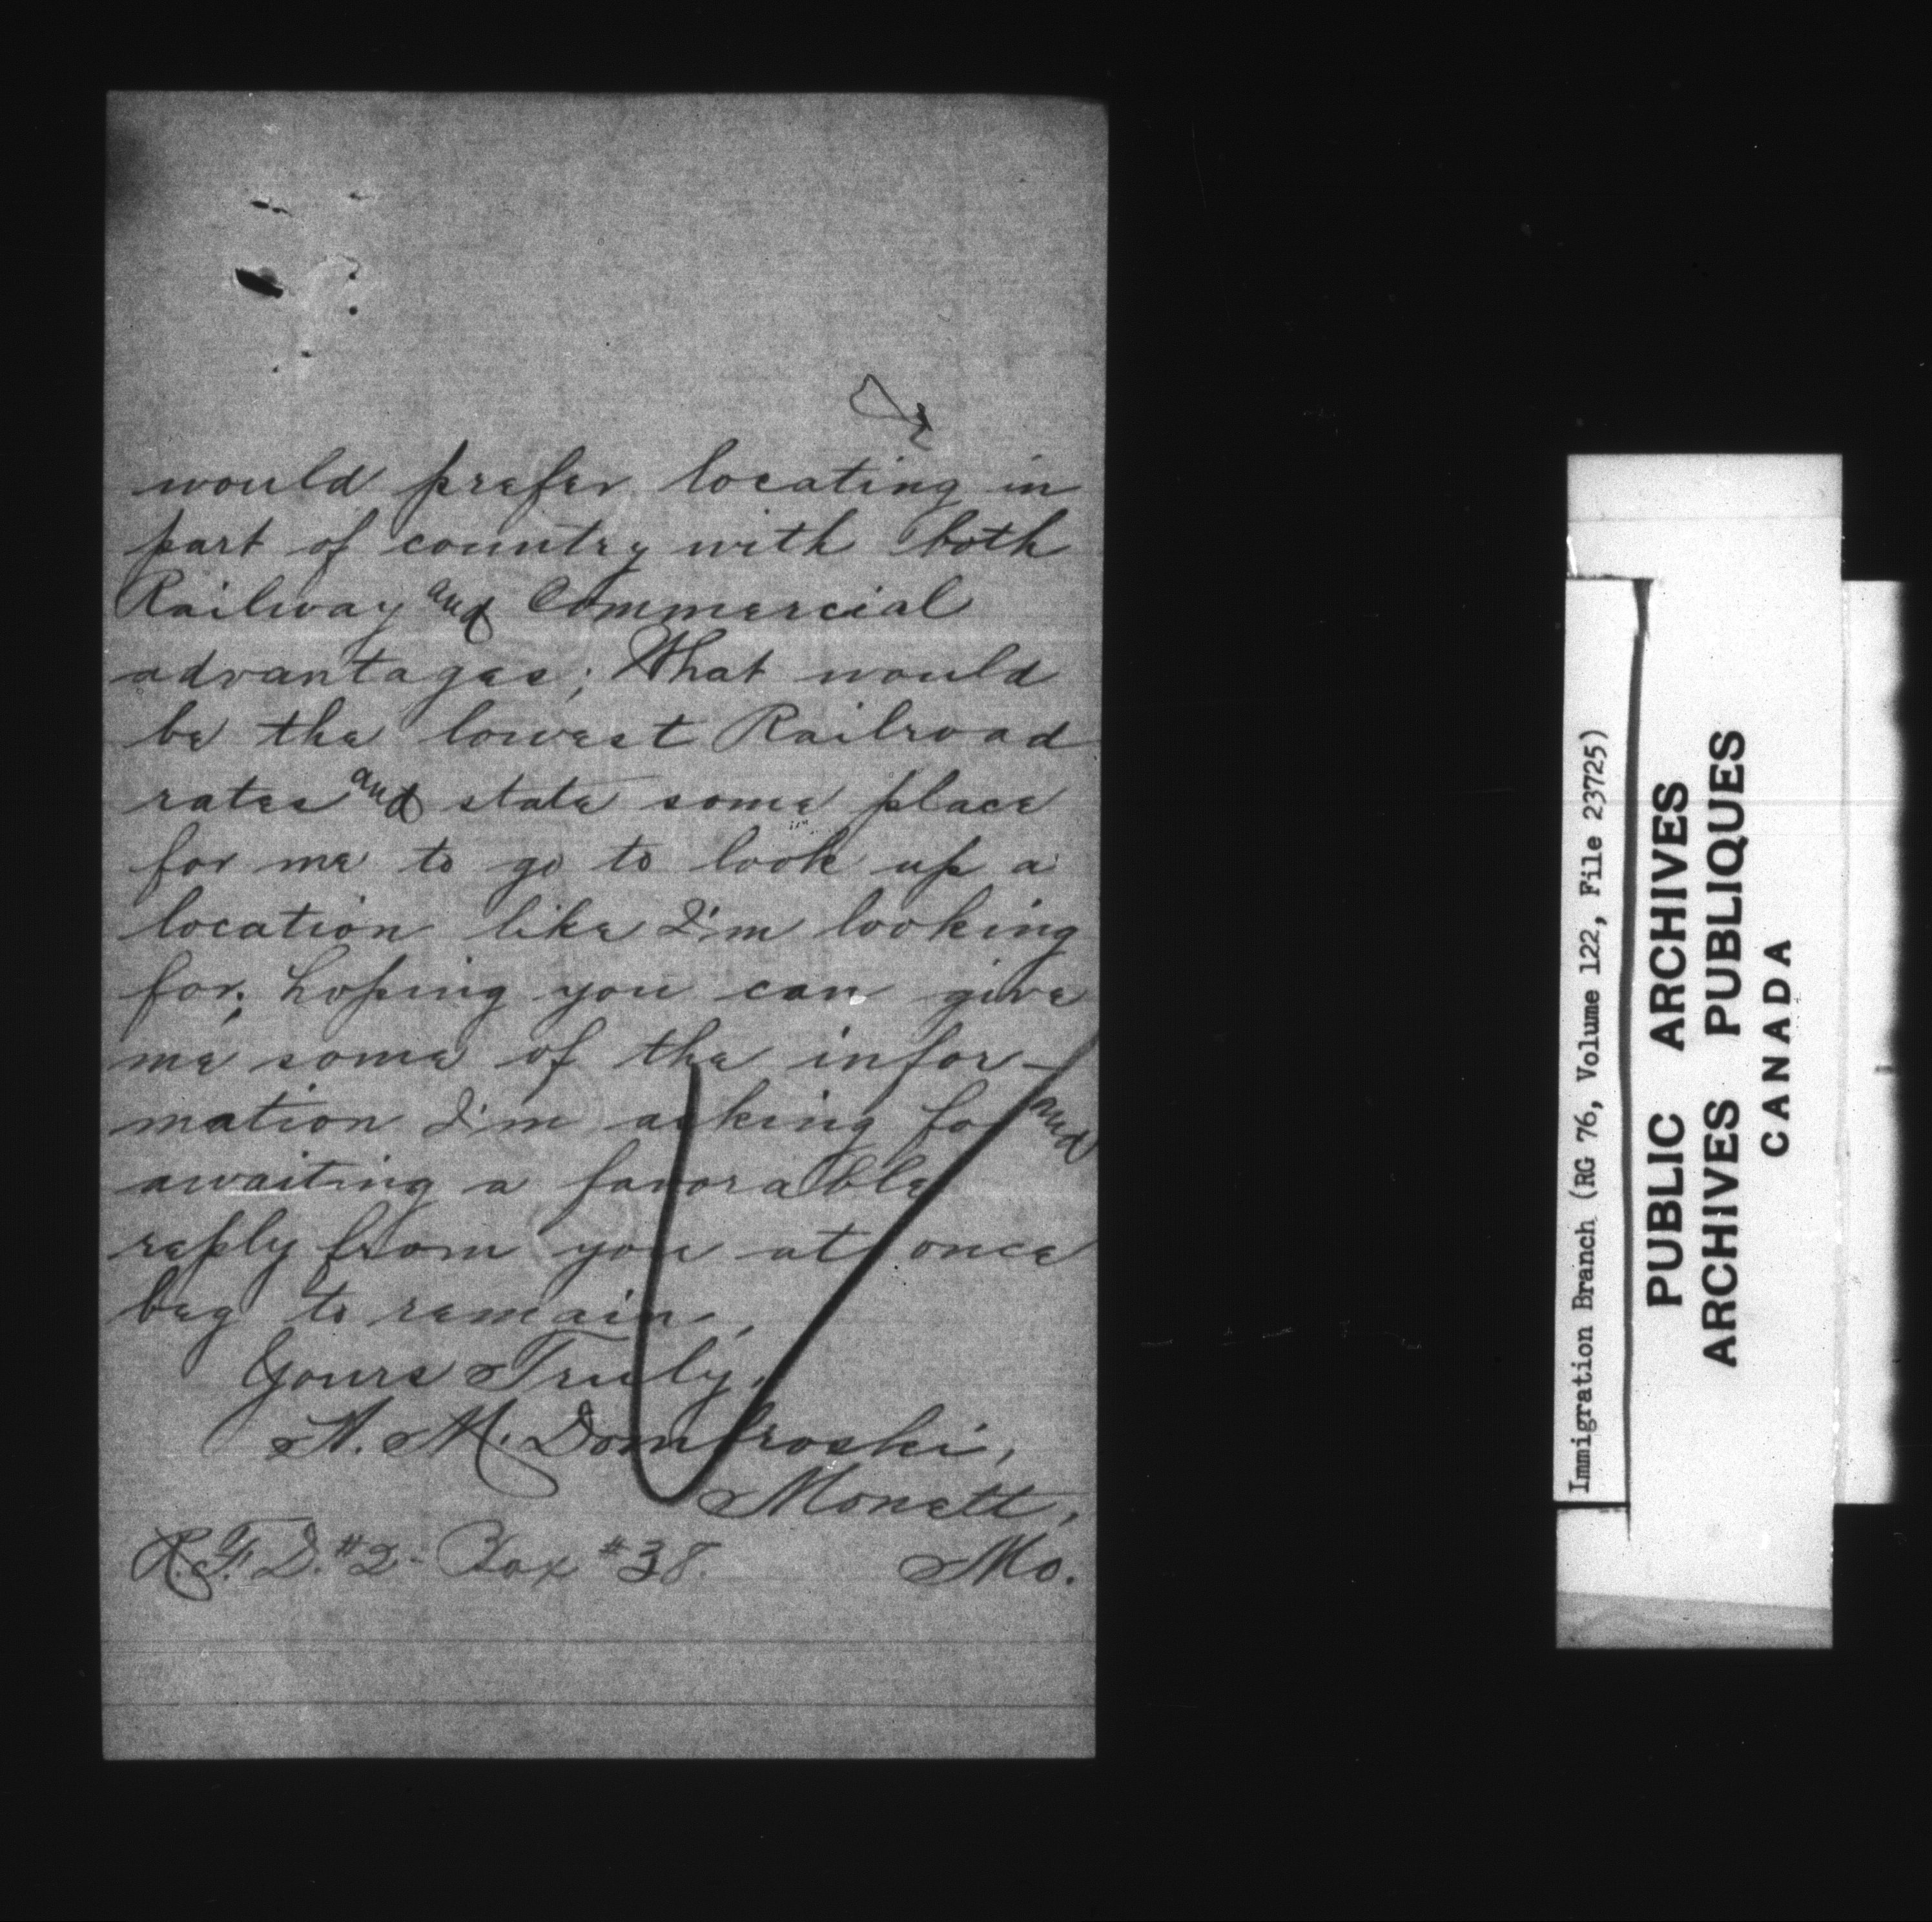 would prefer locating in
part of country with both
Railway and Commercial
advantages; What would
be the lowest Railroad
rates and state some place
for me to go to look up a
location like I'm looking
for; hoping you can give
me some of the infor-
mation I'm asking for and
awaiting a favorable
reply from you at once
beg to remain,
Yours Truly,
A. M. Dombroski,
Monett,
R.F.D. #2- Box #38. Mo.
Immigration Branch (RG 76, Volume 122, File 23725)
PUBLIC ARCHIVES
ARCHIVES PUBLIQUES
CANADA